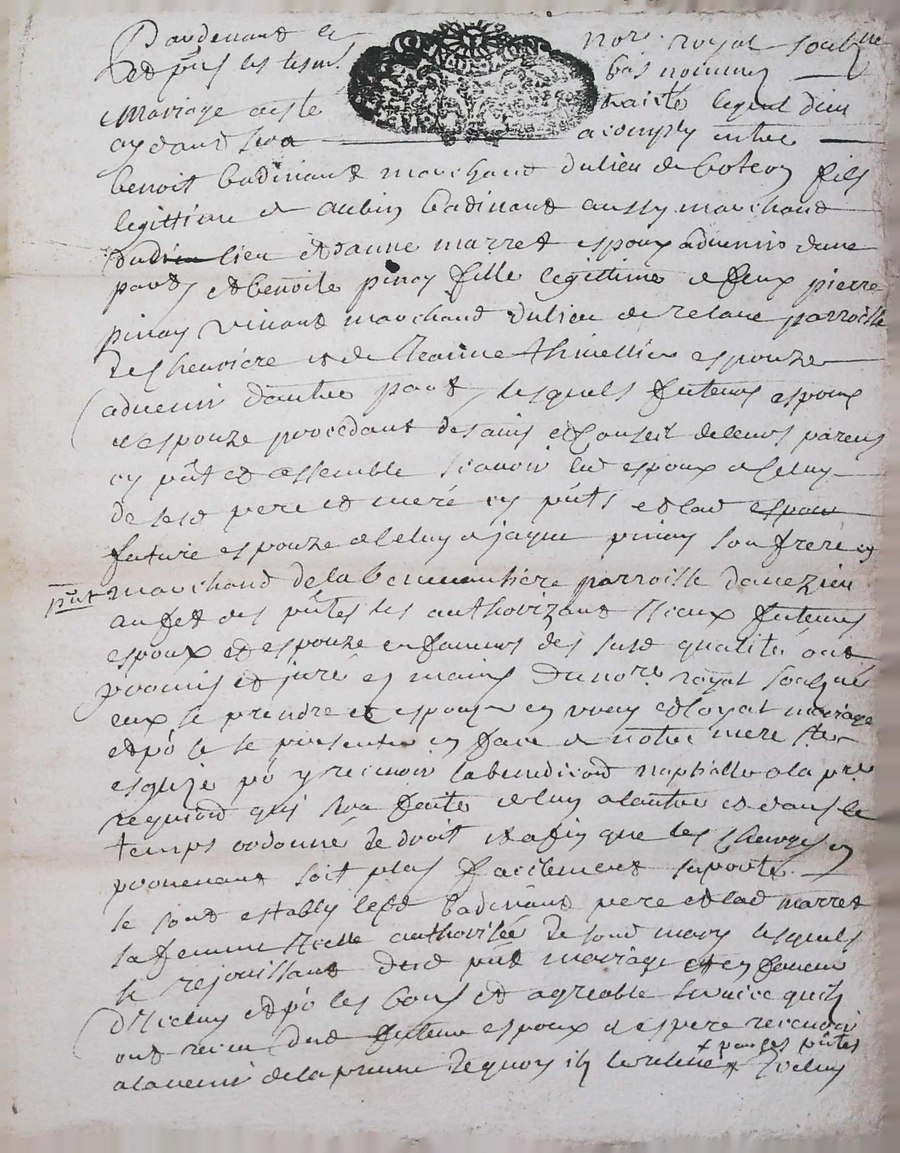 Pardevant le nore royal soubzne
et pnts les tesms bas nommez
Mariage a esté traicté lequel dieu
aydant sera acomply entre
benoit badinand marchand du lieu de
fils
legittime de aubin badinand aussy marchand
dudit lieu et danne marret espoux advenir dune
part et benoite pinay fille legittime de feux pierre
pinay vivant marchand du lieu de parroisse
de chevriere et de Jeanne thivellier espouze
advenir dautre part lesquels futeurs espoux
et espouze procedant de lavis et Conseil de leurs parens
cy pnt et assemble scavoir led espoux de celuy
de sesd pere et mere cy pnts et lad espoux
future espouze de celuy de jaque pinay son frere cy
pnt marchand de la parroisse
au fet des pntes les authorizant Iceux futeurs
espoux et espouze en faveurs des susd qualité ont
promis et juré es mains du nore royal soubzne
eux se prendre et espouzer en vray et loyal mariage
et po ce se presenter en face de notre mere Ste
esglize po y recevoir la benediction nuptialle a la pre
requision qui sera faite de lun a lautre et dans le
temps ordonné de droit et afin que les charges en
provenant soit plus facilement suporté
se sont estably lesd badinand pere et lad marret
sa femme Icelle authorisée de sond mary lesquels
se rejouissant dud pnt mariage et en faveur
d'Iceluy et po les bons et agreable service quils
ont receu dud futeur espoux et espere recevoir
+ par ces pntes
a lavenir de la preuve de quoy ils + Iceluy